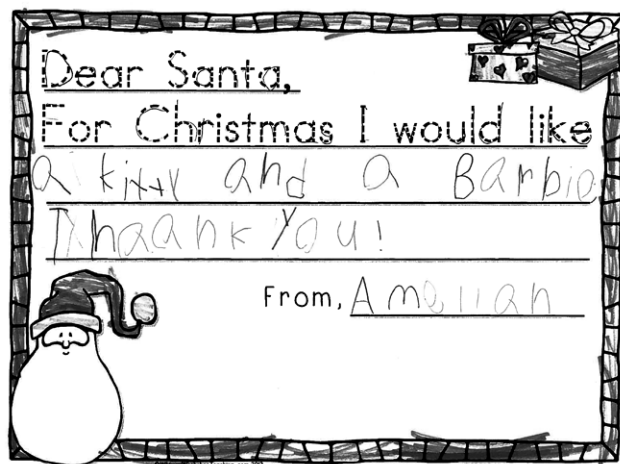 Dear Santa,
For Christmas I would like
a kitty and a Barbie
Thaank You!
From, Amelian